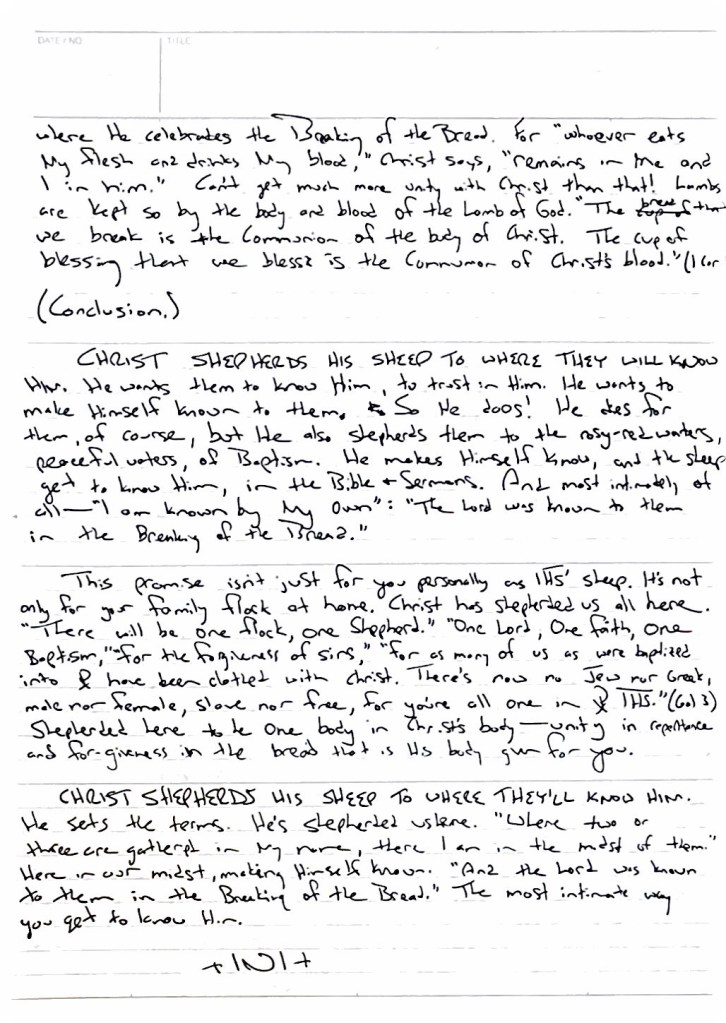 DATE/NO TITLE
where He celebrates the Breaking of the Bread. For "whoever eats
My flesh and drinks My blood," Christ says, "remains in me and
I in him." Can't get much more unity with Christ than that! Lambs
are kept so by the body and blood of the Lamb of God. "The bread that
we break is the Communion of the body of Christ. The cup of
blessing that we bless is the Communion of Christ's blood." (1 Cor
(Conclusion.)
CHRIST SHEPHERDS HIS SHEEP TO WHERE THEY WILL KNOW
HIM. He wants them to know Him, to trust in Him. He wants to
make Himself known to them. So He does! He dies for
them, of course, but He also shepherds them to the rosy-red waters,
peaceful waters, of Baptism. He makes Himself know, and the sheep
get to know Him, in the Bible + Sermons. And most intimately of
all—"I am known by My Own": "The Lord was known to them
in the Breaking of the Bread."
This promise isn't just for you personally as IHS' sheep. It's not
only for your family flock at home. Christ has shepherded us all here.
"There will be one flock, one Shepherd." "One Lord, One faith, One
Baptism," "for the forgiveness of sins," "for as many of us as were baptized
into have been clothed with Christ. There's now no Jew nor Greek,
male nor female, slave nor free, for you're all one in IHS." (Gal 3)
Shepherded here to be One body in Christ's body—unity in repentance
and for-giveness in the bread that is His body given for you.
CHRIST SHEPHERDS HIS SHEEP TO WHERE THEY'LL KNOW HIM.
He sets the terms. He's shepherded us here. "Where two or
three are gathered in My name, there I am in the midst of them."
Here in our midst, making Himself known. "And the Lord was known
to them in the Breaking of the Bread." The most intimate way
you get to know Him.
+INI+